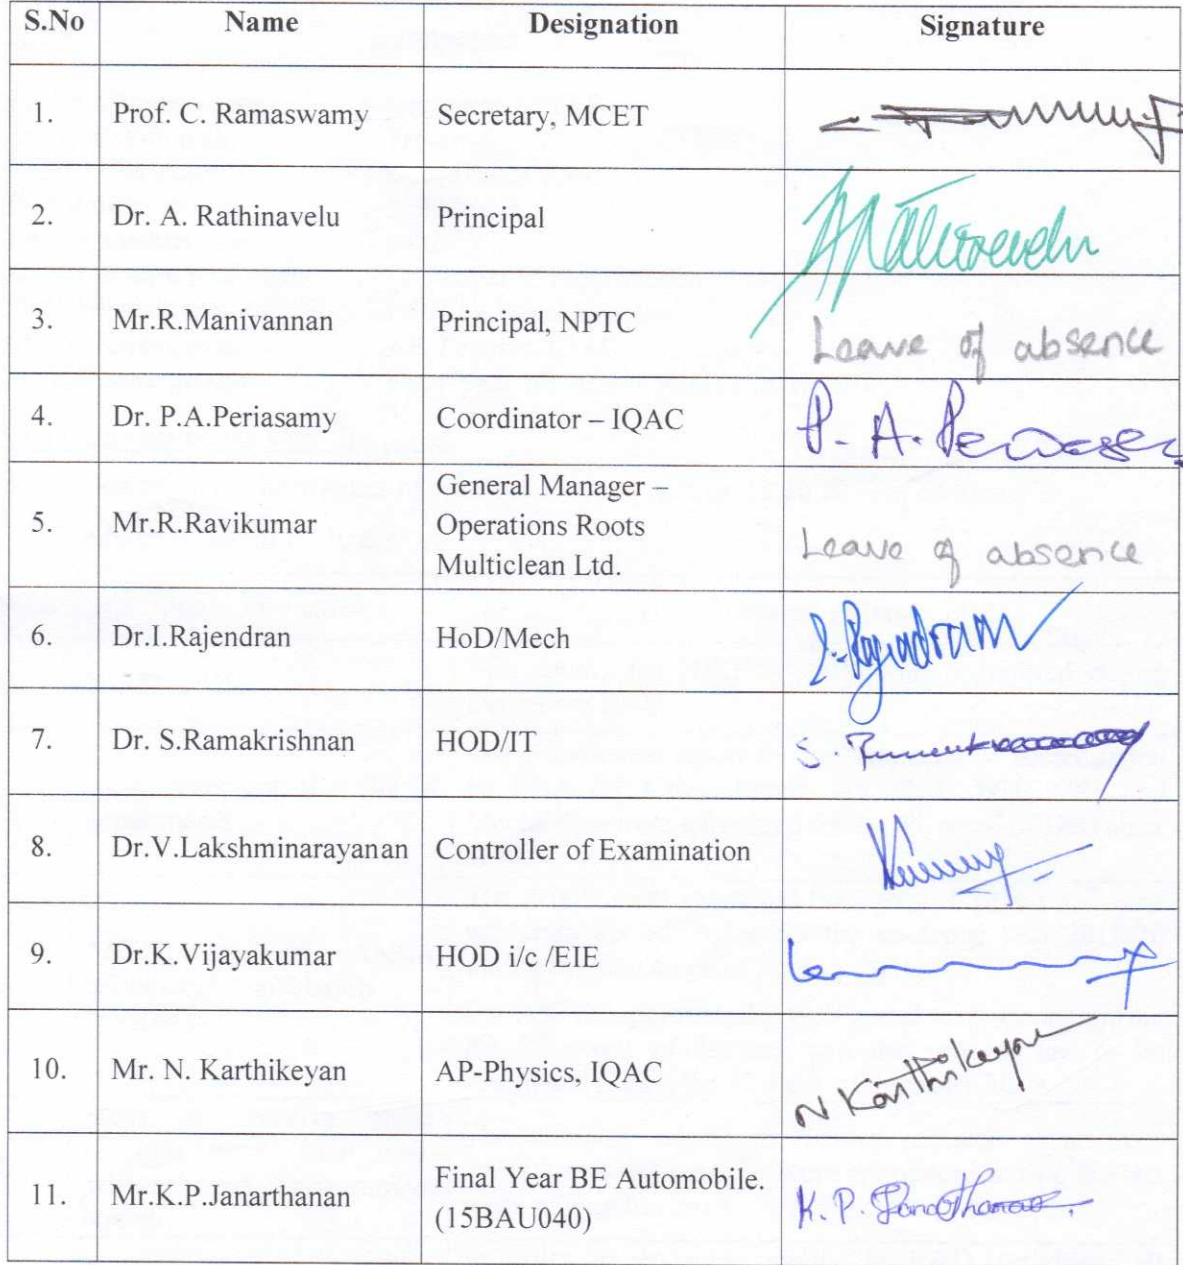 S.No Name Designation Signature
1. Prof. C. Ramaswamy Secretary, MCET
2. Dr. A. Rathinavelu Principal A Rathinavelu
3. Mr.R.Manivannan Principal, NPTC Leave of absence
4. Dr. P.A.Periasamy Coordinator – IQAC P. A. Periasamy
5. Mr.R.Ravikumar General Manager –
Operations Roots
Multiclean Ltd. Leave of absence
6. Dr.I.Rajendran HoD/Mech I. Rajendran
7. Dr. S.Ramakrishnan HOD/IT S.
8. Dr.V.Lakshminarayanan Controller of Examination
9. Dr.K.Vijayakumar HOD i/c /EIE
10. Mr. N. Karthikeyan AP-Physics, IQAC N Karthikeyan
11. Mr.K.P.Janarthanan Final Year BE Automobile.
(15BAU040) K. P. Janarthanan